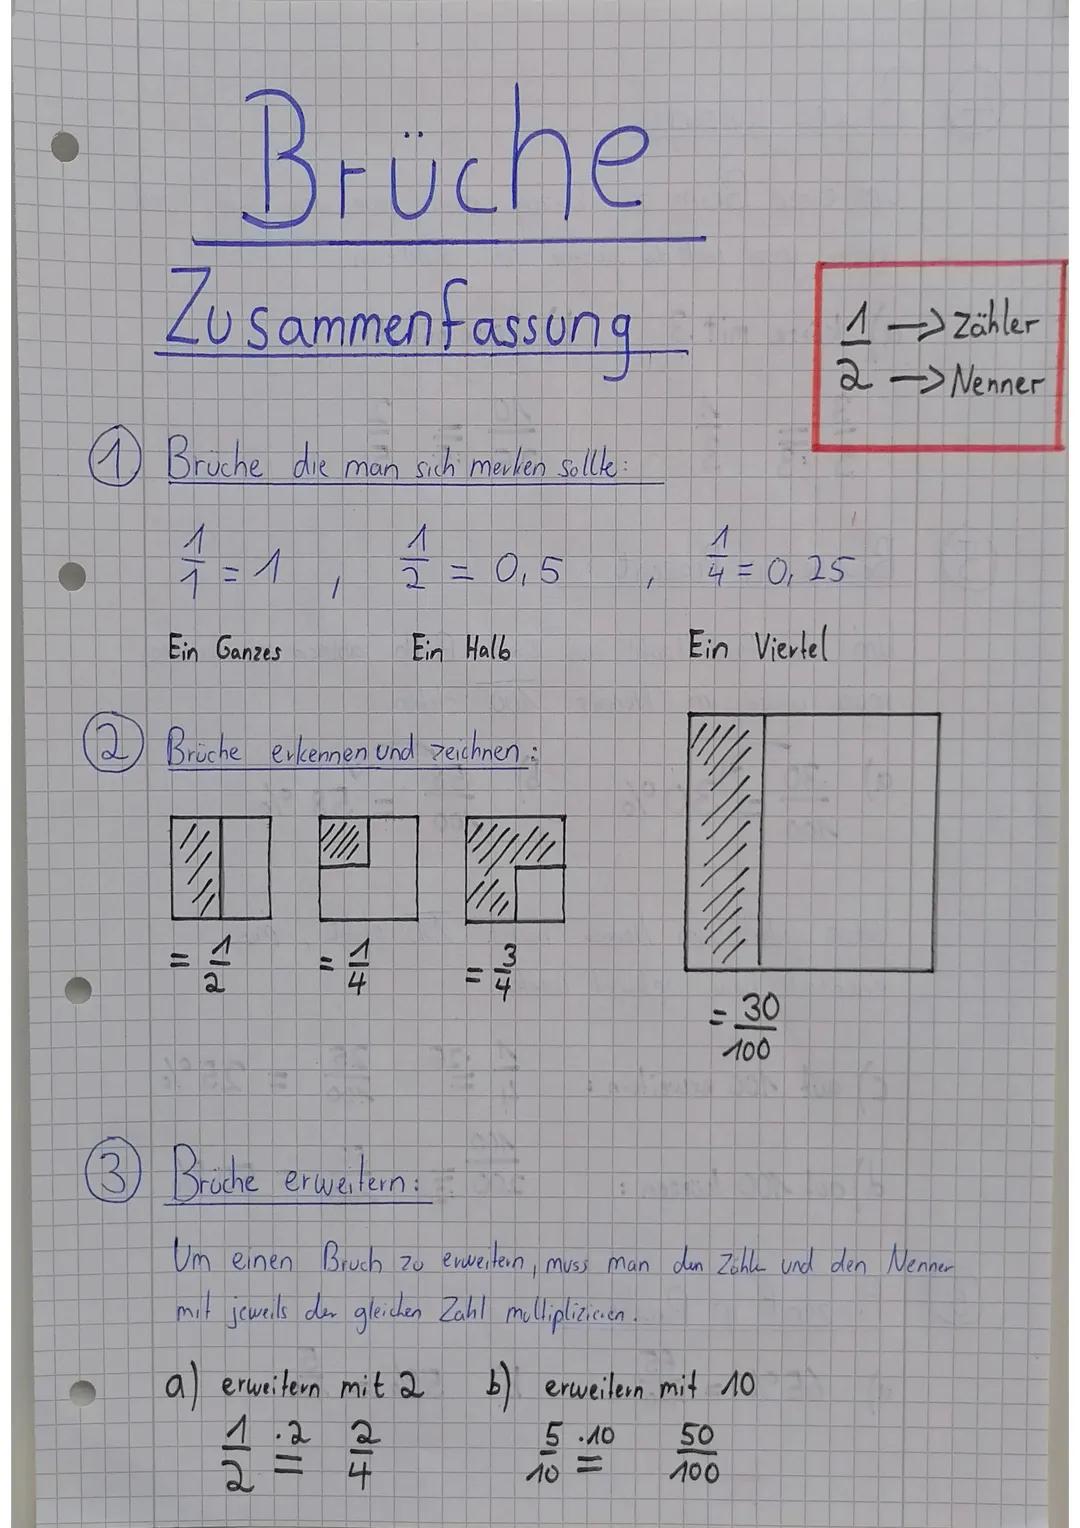 Brüche
Zusammenfassung
1/2 → Zähler
→ Nenner
① Brüche die man sich merken sollte:
1/1 = 1 , 1/2 = 0,5 , 1/4 = 0,25
Ein Ganzes Ein Halb Ein Viertel
② Brüche erkennen und zeichnen:
= 1/2 = 1/4 = 3/4 = 30/100
③ Brüche erweitern:
Um einen Bruch zu erweitern, muss man den Zähler und den Nenner
mit jeweils der gleichen Zahl multiplizieren.
a) erweitern mit 2 b) erweitern mit 10
1/2 ·2= 2/4 5/10 ·10= 50/100